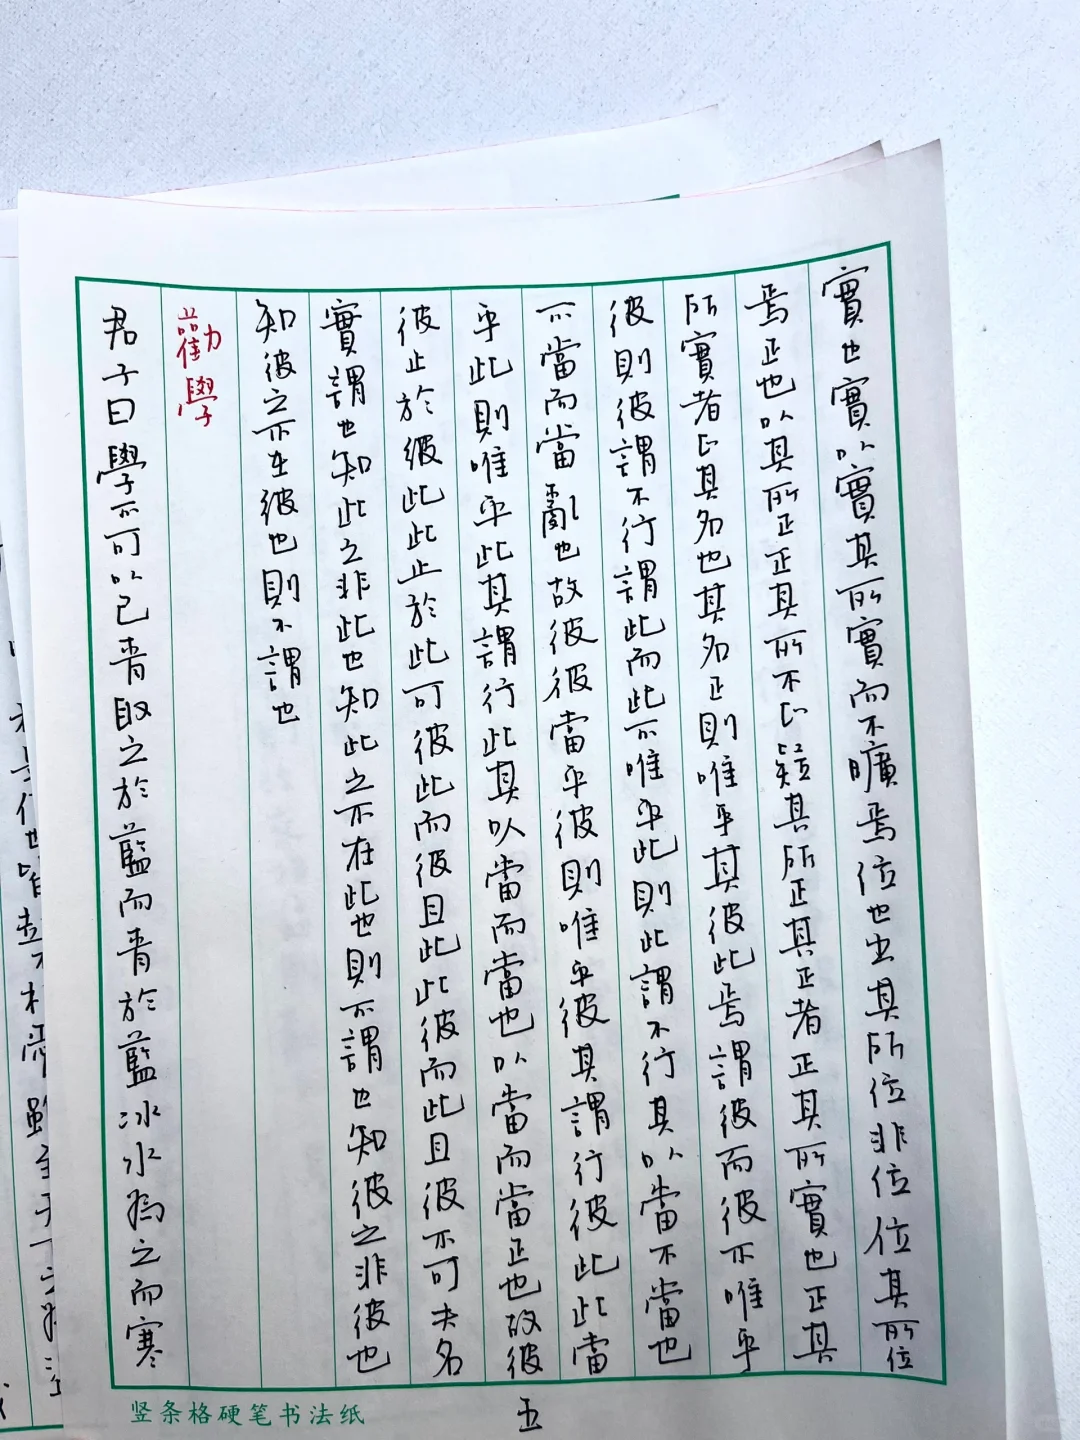 實也實以實其所實而不曠焉位也出其所位非位位其所位
焉正也以其所正正其所不正疑其所正其正者正其所實也正其
所實者正其名也其名正則唯乎其彼此焉謂彼而彼不唯乎
彼則彼謂不行謂此而此不唯乎此則此謂不行其以當不當也
不當而當亂也故彼彼當乎彼則唯乎彼其謂行彼此此當
乎此則唯乎此其謂行此其以當而當也以當而當正也故彼
彼止於彼此此止於此可彼此而彼且此此彼而此且彼不可夫名
實謂也知此之非此也知此之不在此也則不謂也知彼之非彼也
知彼之不在彼也則不謂也
勸學
君子曰學不可以已青取之於藍而青於藍冰水為之而寒
竖条格硬笔书法纸
五